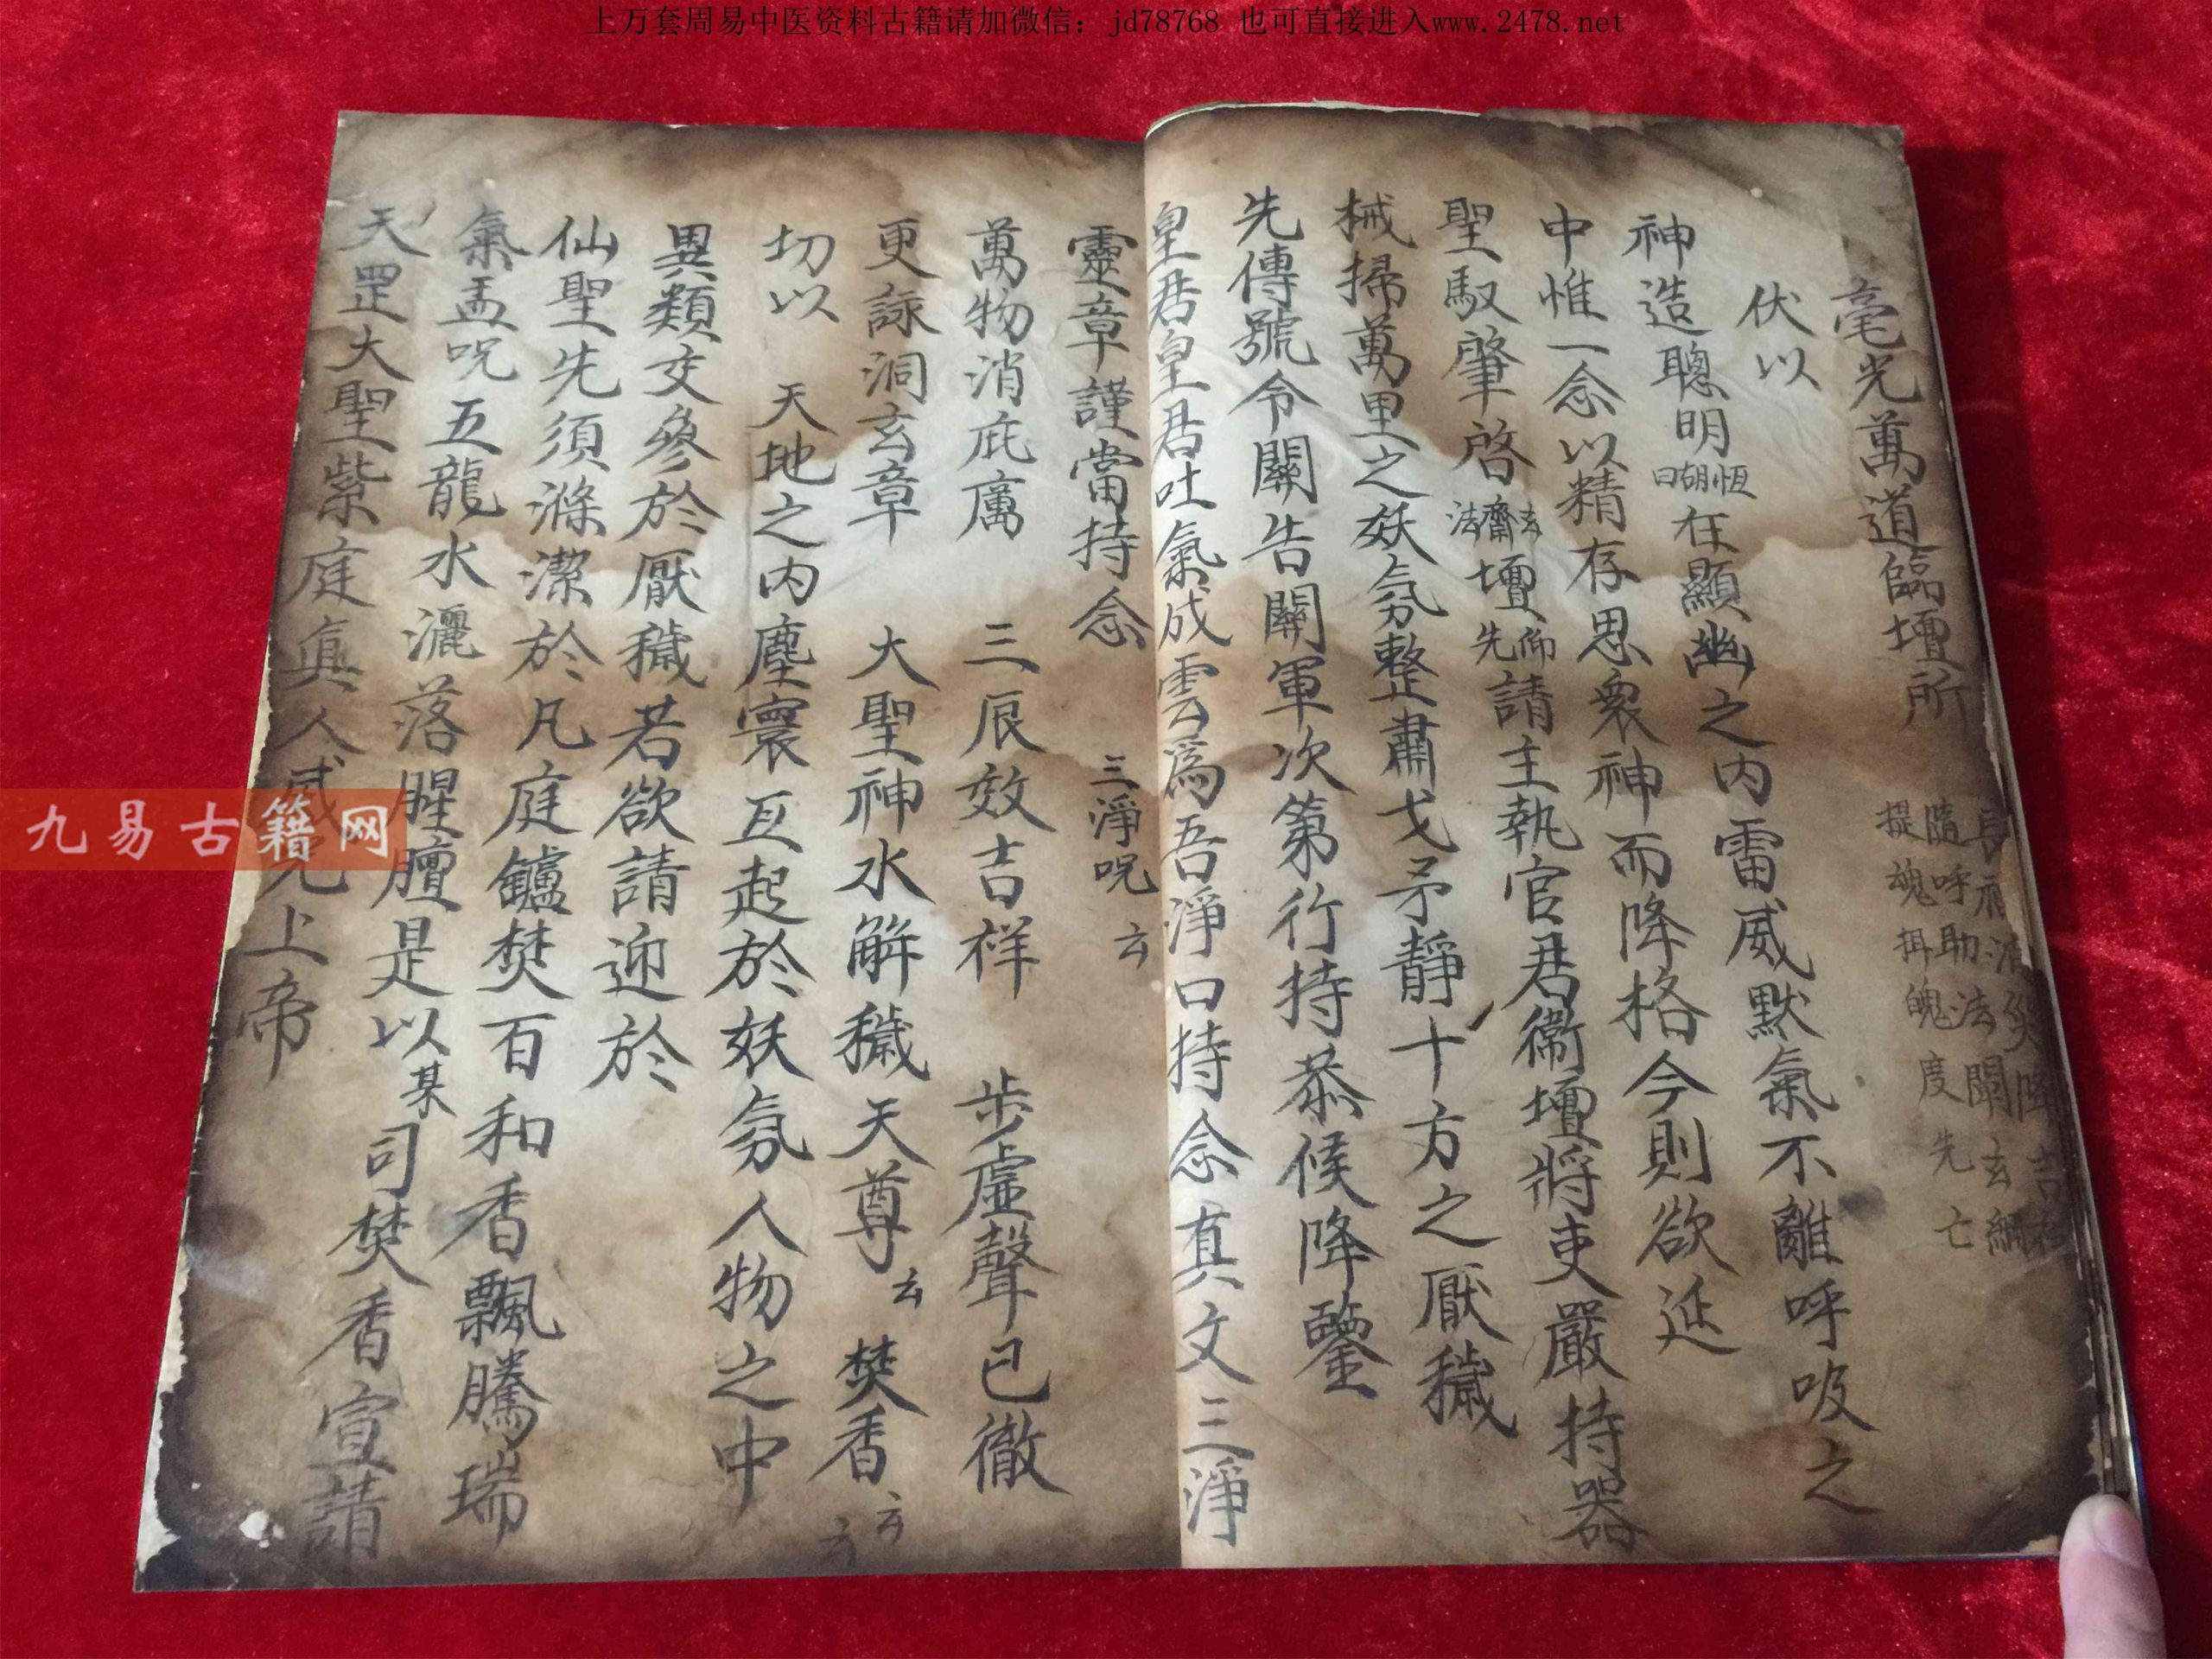 上万套周易中医资料古籍请加微信：jd78768 也可直接进入www.2478.net
毫光萬道臨壇所
消災降吉祥
隨呼助法闡玄綱
提魂拘魄度先亡
伏以
神造聰明恆朝曰在顯幽之内雷威默氣不離呼吸之
中惟一念以精存思衆神而降格今則欲延
聖馭肇啓玄齋法壇仰先請主執官君衛壇將吏嚴持器
械掃萬里之妖氛整肅戈矛靜十方之厭穢
先傳號令關告關軍次第行持恭候降鑒
皇君皇君吐氣成雲為吾淨口持念真文三淨
靈章謹當持念 三淨呪 云
萬物消疵厲 三辰效吉祥 步虛聲已徹
更詠洞玄章 大聖神水解穢天尊 云 焚香、云云
切以 天地之内塵寰亙起於妖氛人物之中
異類交參於厭穢若欲請迎於
仙聖先須滌潔於凡庭鑪焚百和香飄騰瑞
氣盂呪五龍水灑落腥膻是以某司焚香宣請
天罡大聖紫庭真人威光上帝
九易古籍网